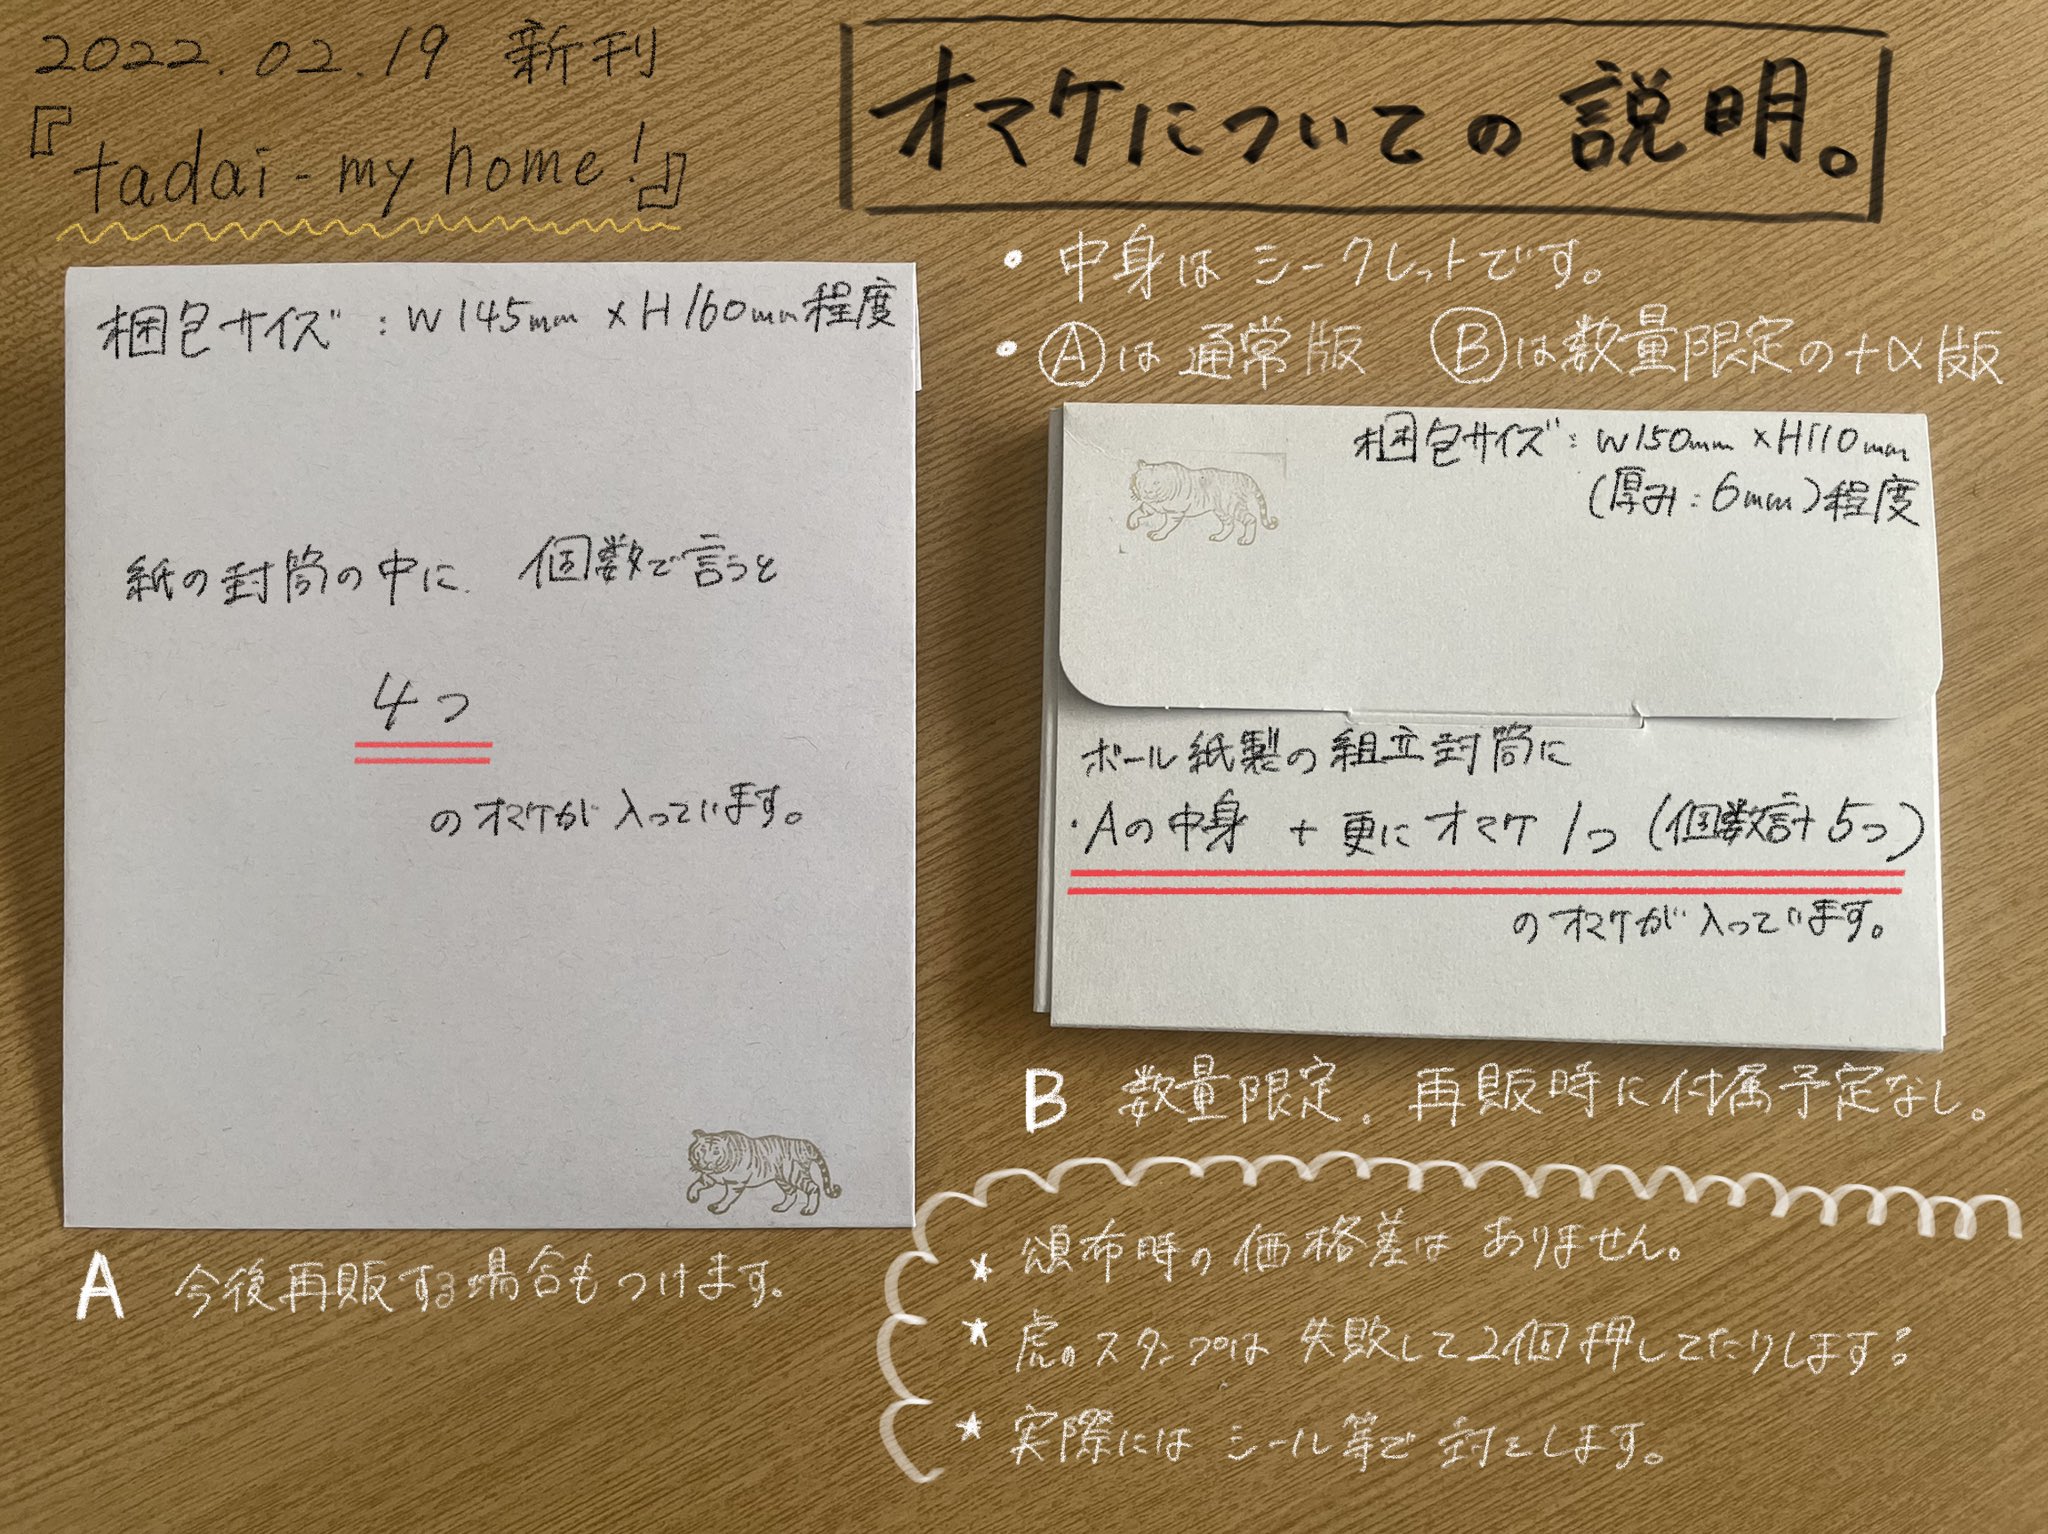 2022.02.19 新刊
『tadai-my home!』
オマケについての説明。
・中身はシークレットです。
・Ⓐは通常版 Ⓑは数量限定の+α版
梱包サイズ:W145mm×H160mm程度
紙の封筒の中に、個数で言うと
4つ
のオマケが入っています。
A 今後再販する場合もつけます。
梱包サイズ:W150mm×H110mm
(厚み:6mm)程度
ボール紙製の組立封筒に
・Aの中身 + 更にオマケ1つ(個数計5つ)
のオマケが入っています。
B 数量限定。再販時に付属予定なし。
★ 頒布時の価格差はありません。
★ 虎のスタンプは失敗して2個押してたりします。
★ 実際にはシール等で封をします。